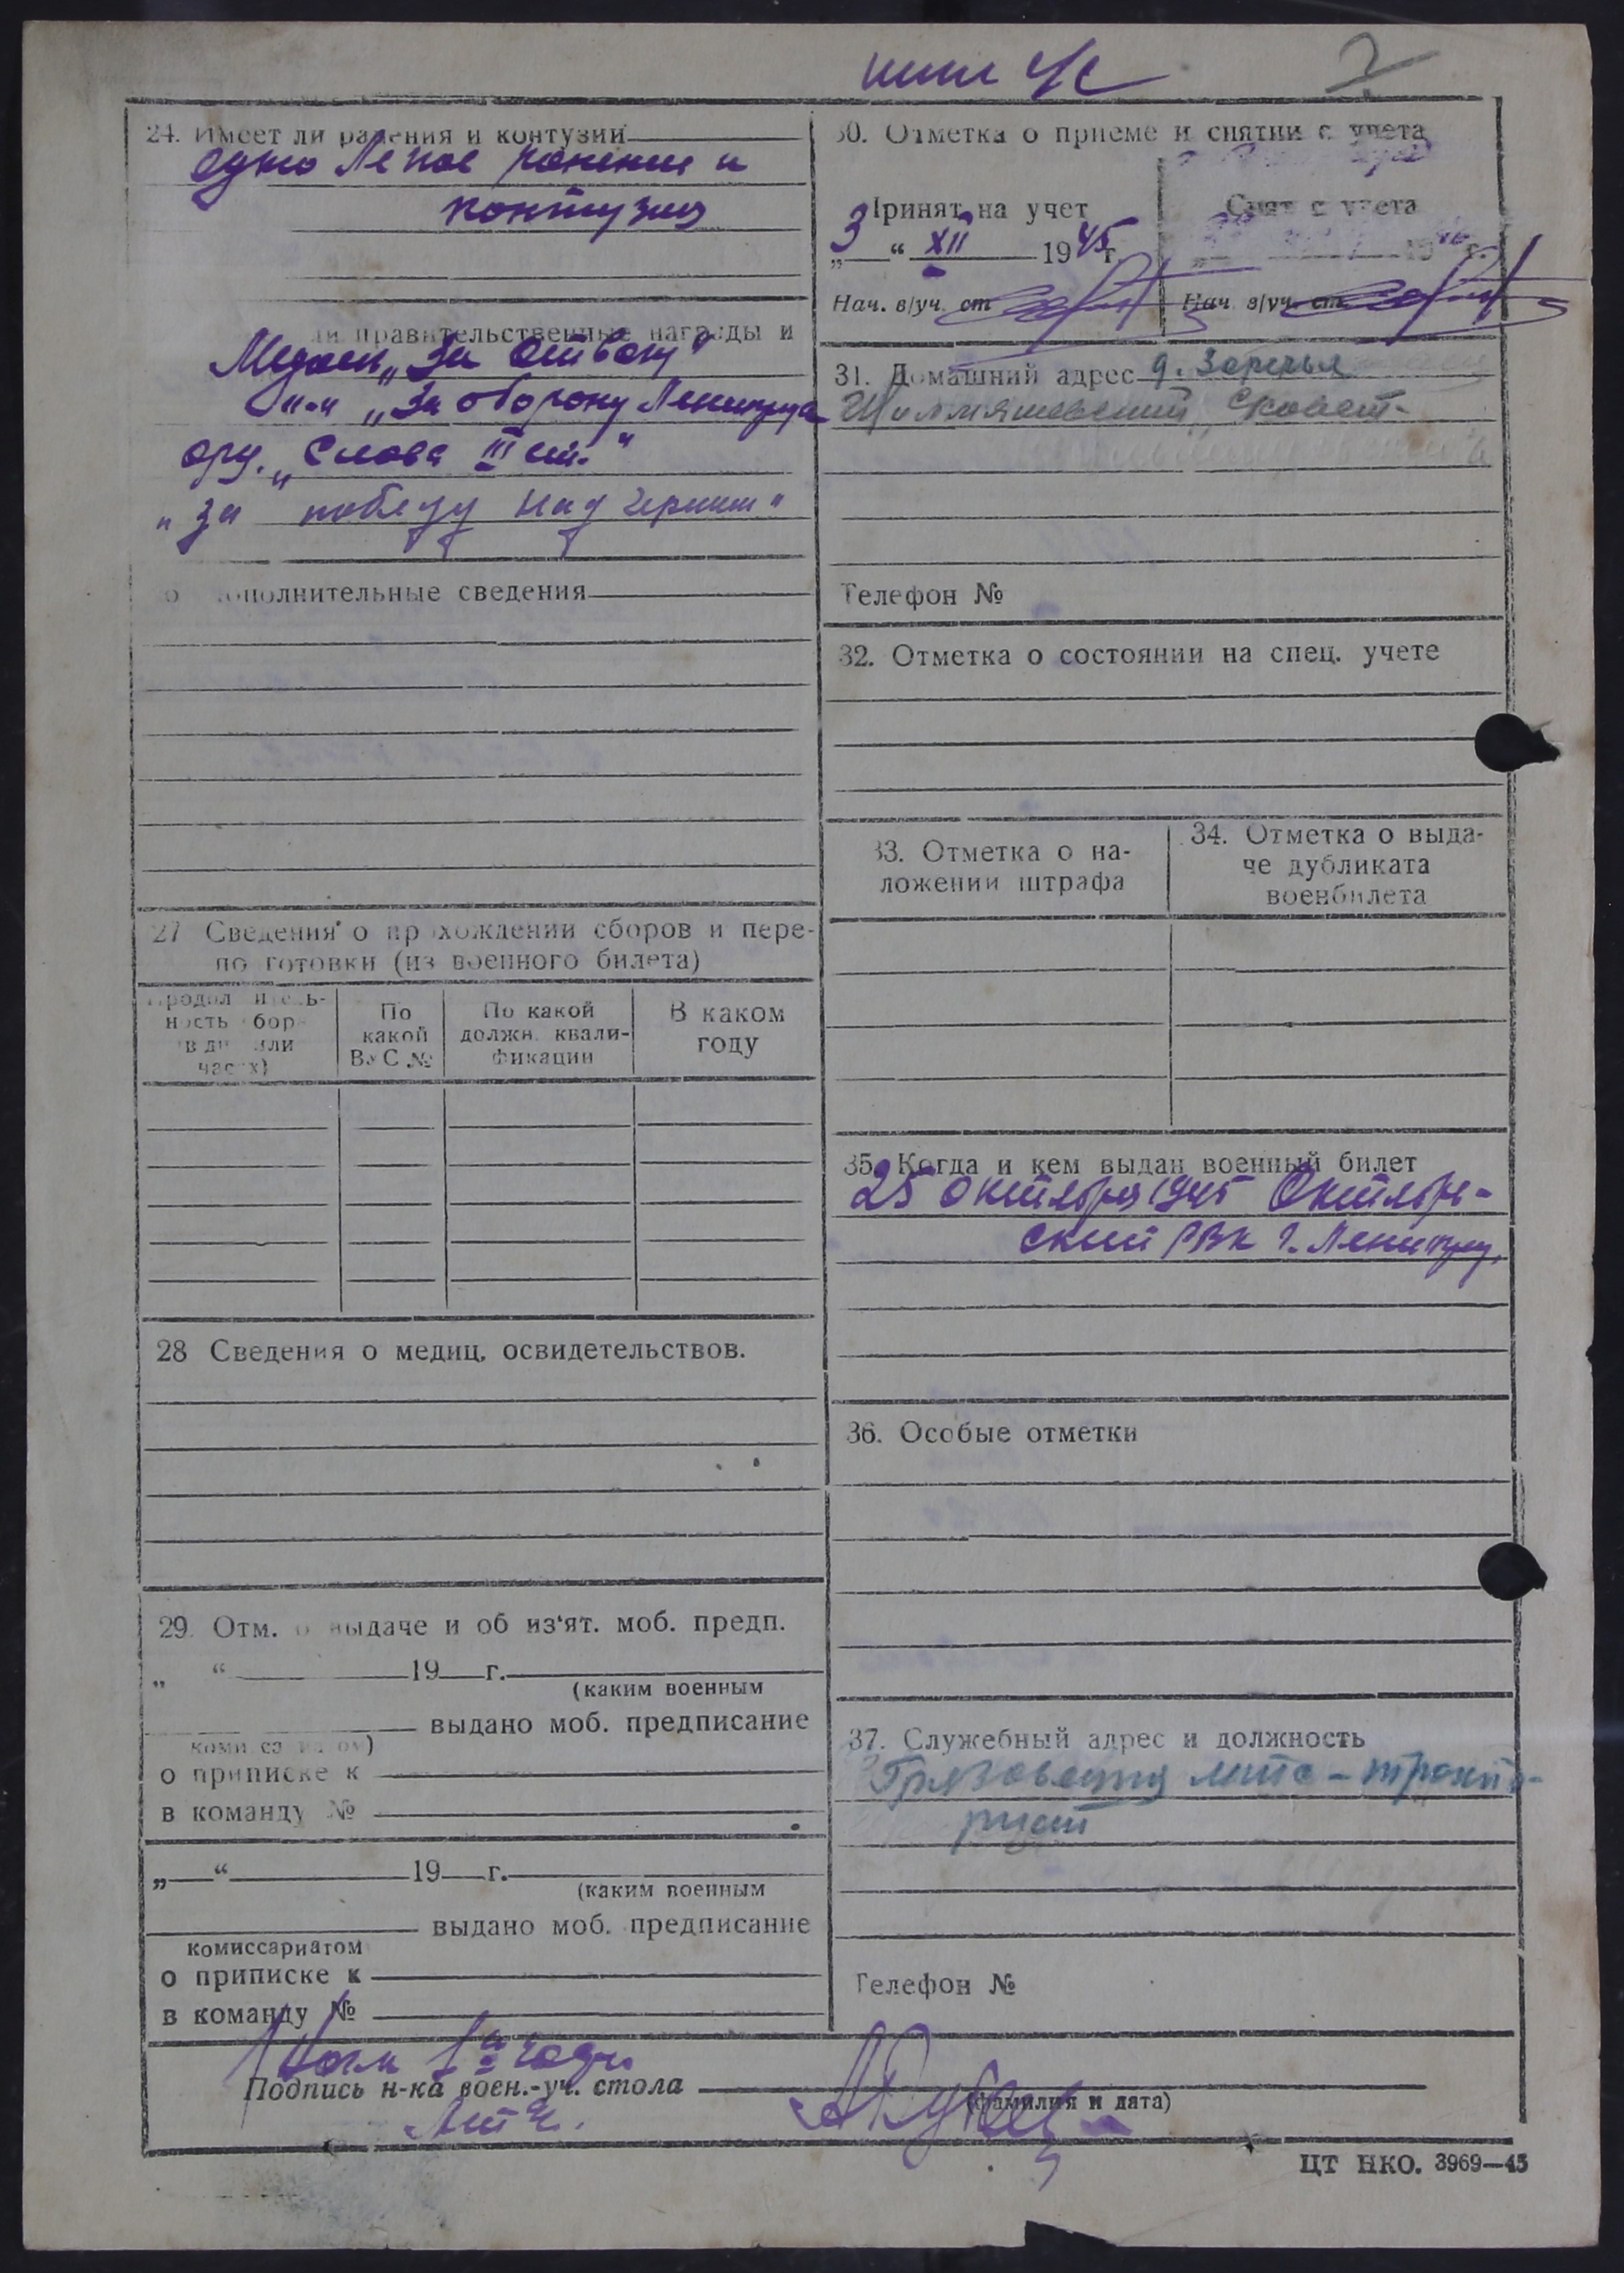 24. Имеет ли ранения и контузии
одно легкое ранение и
контузия
правительственные награды и
Медаль „За отвагу"
„За оборону Ленинграда
орд. „Слава III ст."
„За победу над Герман"
дополнительные сведения
27 Сведения о прохождении сборов и пере-
подготовки (из военного билета)
Продолжитель-
ность сбора
в дн или
часах)
По
какой
ВУС №
По какой
должн. квали-
фикации
В каком
году
28 Сведения о медиц. освидетельствов.
29. Отм. о выдаче и об из‘ят. моб. предп.
„ “ 19 г.
(каким военным
выдано моб. предписание
комиссариатом)
о приписке к
в команду №
„ “ 19 г.
(каким военным
выдано моб. предписание
комиссариатом
о приписке к
в команду №
30. Отметка о приеме и снятии с учета
Принят на учет
„3“ XII 1945 г.
Нач. в/уч. ст
Снят с учета
19 г.
Нач. в/уч. ст.
31. Домашний адрес д. Заречья
Телефон №
32. Отметка о состоянии на спец. учете
33. Отметка о на-
ложении штрафа
34. Отметка о выда-
че дубликата
военбилета
35. Когда и кем выдан военный билет
25 октября 1945 Октябрь-
ский РВК г. Ленингр.
36. Особые отметки
37. Служебный адрес и должность
Телефон №
Подпись н-ка воен.-уч. стола
(фамилия и дата)
ЦТ НКО. 3969—45